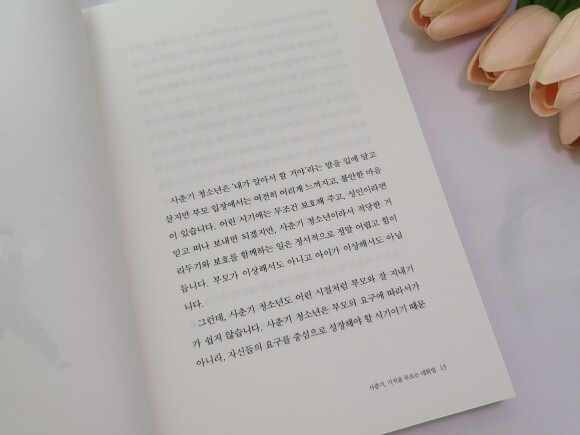 사춘기 청소년은 '내가 알아서 할 거야'라는 말을 입에 달고
살지만 부모 입장에서는 여전히 어리게 느껴지고, 불안한 마음
이 있습니다. 어린 시기에는 무조건 보호해 주고, 성인이라면
믿고 떠나 보내면 되겠지만, 사춘기 청소년이라서 적당한 거
리두기와 보호를 함께하는 일은 정서적으로 정말 어렵고 힘이
듭니다. 부모가 이상해서도 아니고 아이가 이상해서도 아닙
니다.
그런데, 사춘기 청소년도 어린 시절처럼 부모와 잘 지내기
가 쉽지 않습니다. 사춘기 청소년은 부모의 요구에 따라서가
아니라, 자신들의 요구를 중심으로 성장해야 할 시기이기 때문
사춘기, 기적을 부르는 대화법 15